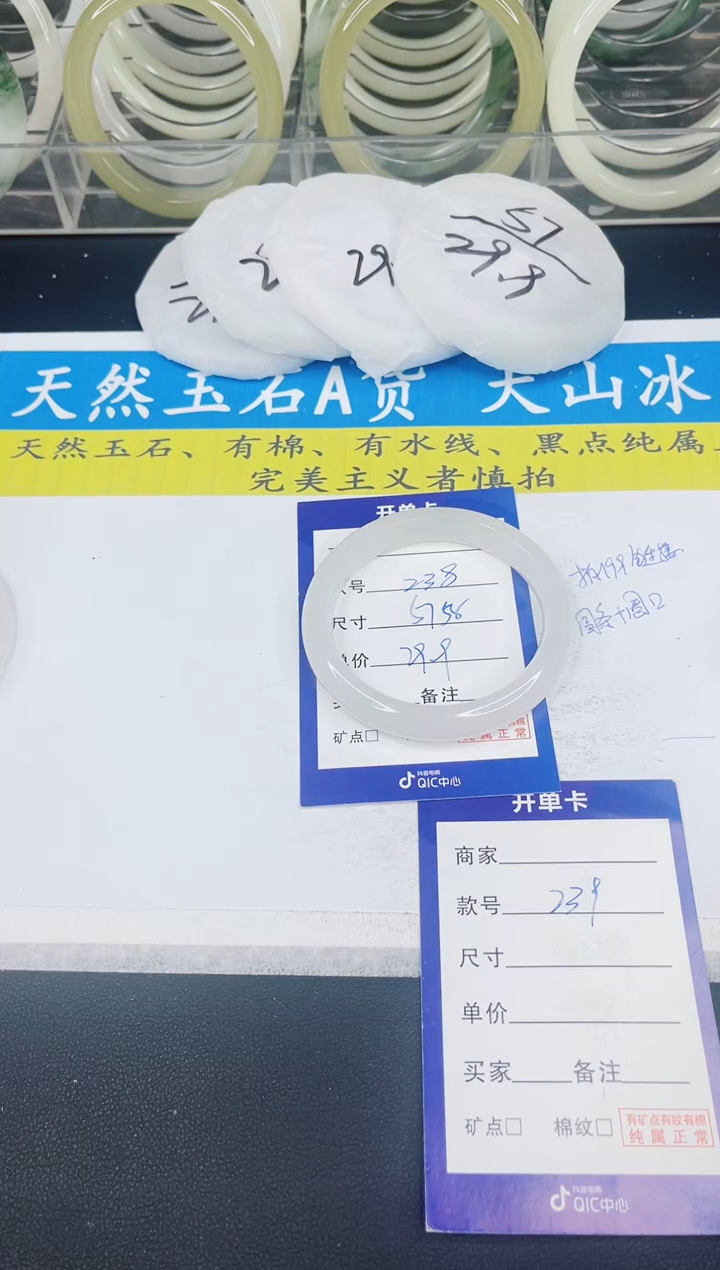 57
29.9
29
2
天然玉石A货 天山冰
天然玉石、有棉、有水线、黑点纯属
完美主义者慎拍
开单卡
款号 238
尺寸 5756
单价 29.9
备注
矿点□
纯属正常
抖音电商
QIC中心
开单卡
商家
款号 239
尺寸
单价
买家 备注
矿点□ 棉纹□
有矿点有纹有棉
纯属正常
抖音电商
QIC中心